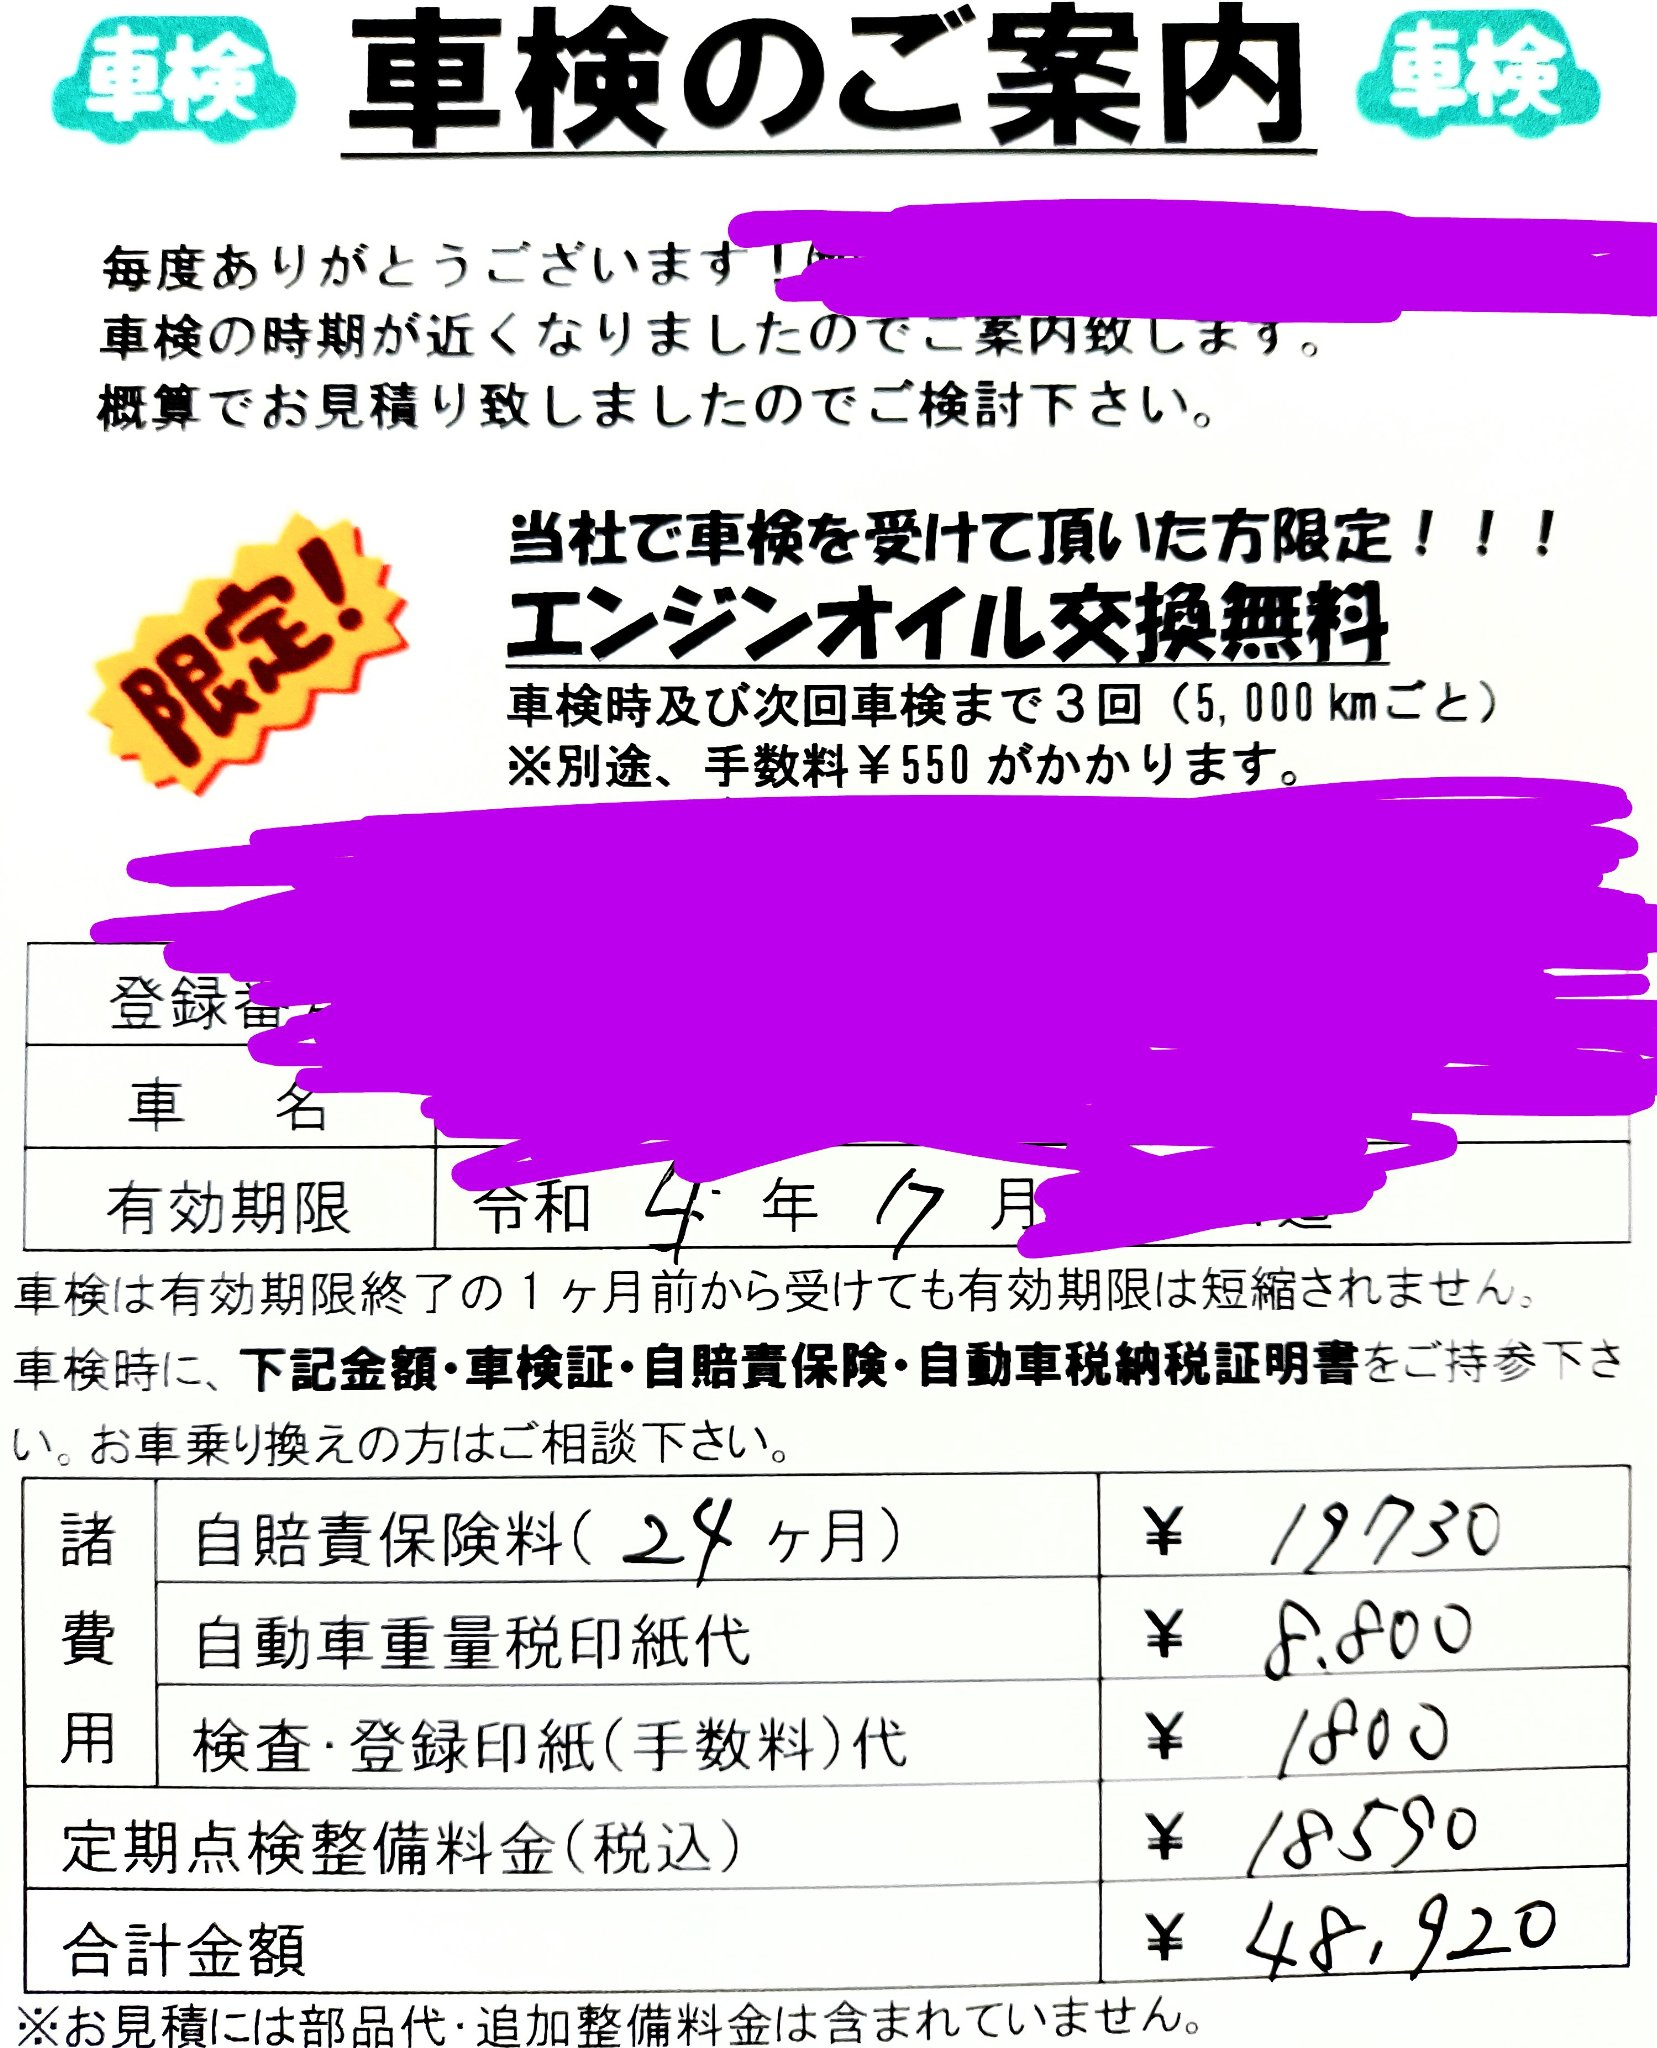 車検
車検のご案内
車検
毎度ありがとうございます!
車検の時期が近くなりましたのでご案内致します。
概算でお見積り致しましたのでご検討下さい。
限定!
当社で車検を受けて頂いた方限定!!!
エンジンオイル交換無料
車検時及び次回車検まで3回(5,000kmごと)
※別途、手数料¥550がかかります。
登録番
車 名
有効期限 令和 4 年 7 月
車検は有効期限終了の1ヶ月前から受けても有効期限は短縮されません。
車検時に、下記金額・車検証・自賠責保険・自動車税納税証明書をご持参下さ
い。お車乗り換えの方はご相談下さい。
諸費用
自賠責保険料( 24 ヶ月) ¥ 19730
自動車重量税印紙代 ¥ 8.800
検査・登録印紙(手数料)代 ¥ 1800
定期点検整備料金(税込) ¥ 18590
合計金額 ¥ 48,920
※お見積には部品代・追加整備料金は含まれていません。